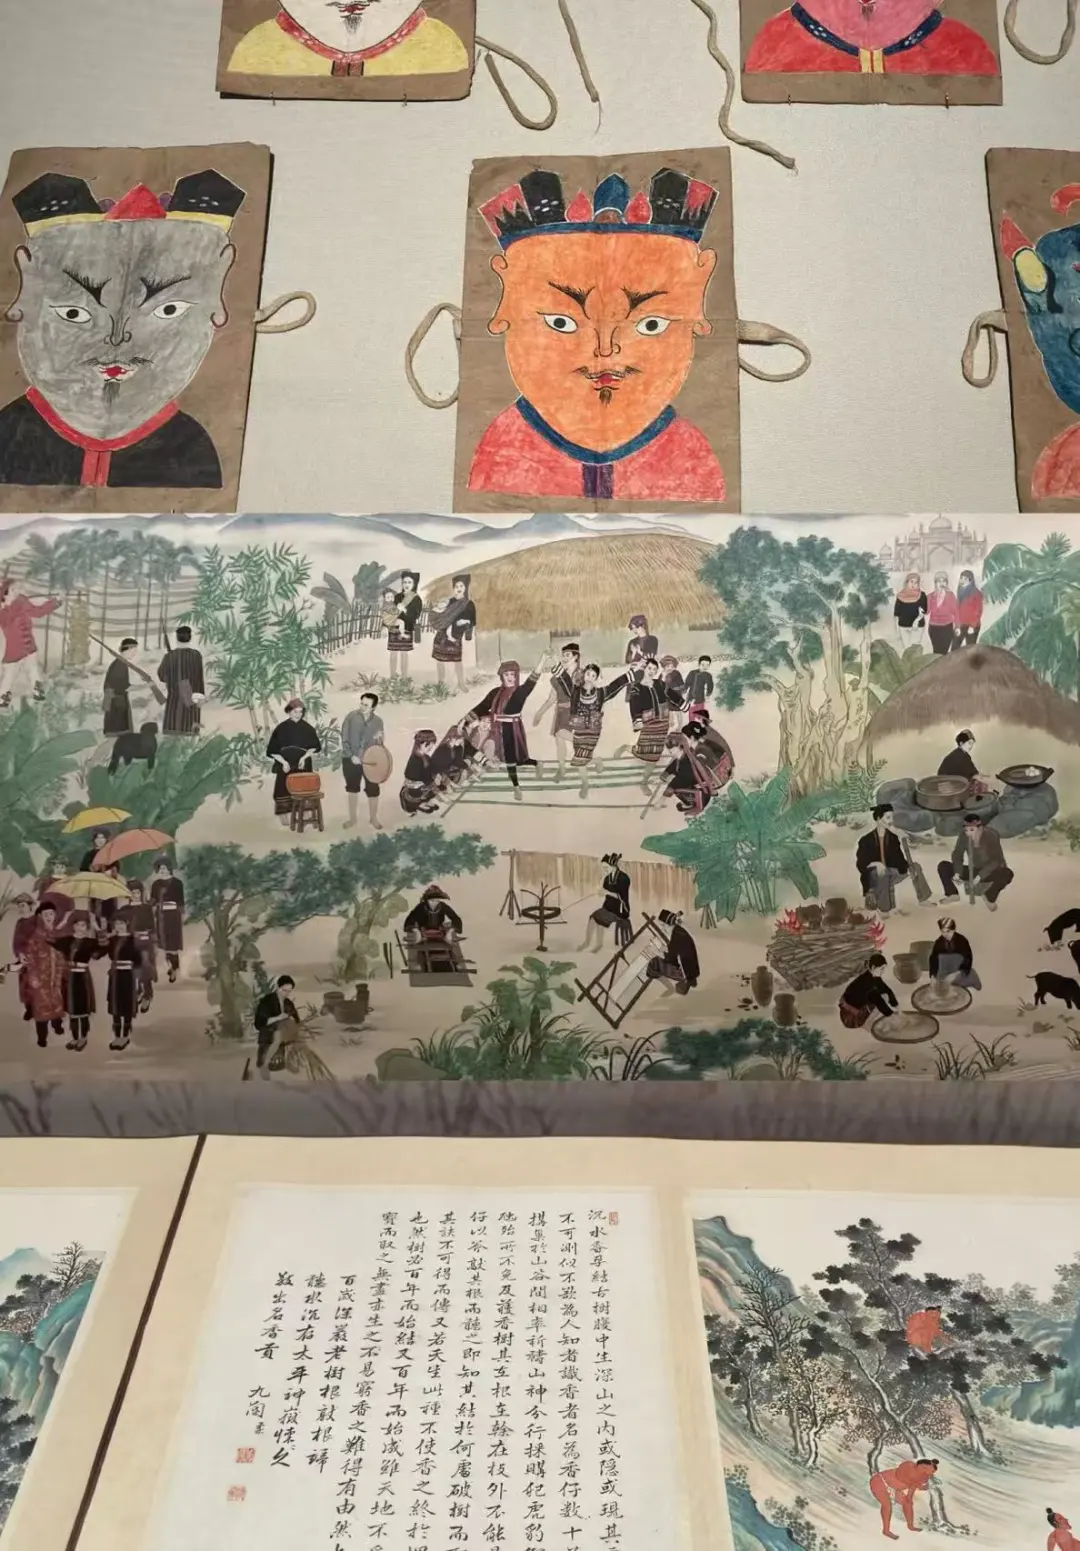 沉水香孕結古樹腹中生深山之內或隱或現其
不可測似不欲為人知者識香者名為香仔數十
搆巢於山谷間相率祈禱山神分行採購犯虎豹
虺殆所不免及獲香樹其在根在榦在枝外不能
仔以斧敲其根而聽之即知其結於何處破樹而
其訣不可得而傳又若天生此種不使香之終於
也然樹必百年而始結又百年而始成雖天地不
寶而取之無盡亦生之不易窮香之難得有由然
百歲深巖老樹根敲根諦
聽水沉存太平神嶽懷
敬出名香貢
九蘭